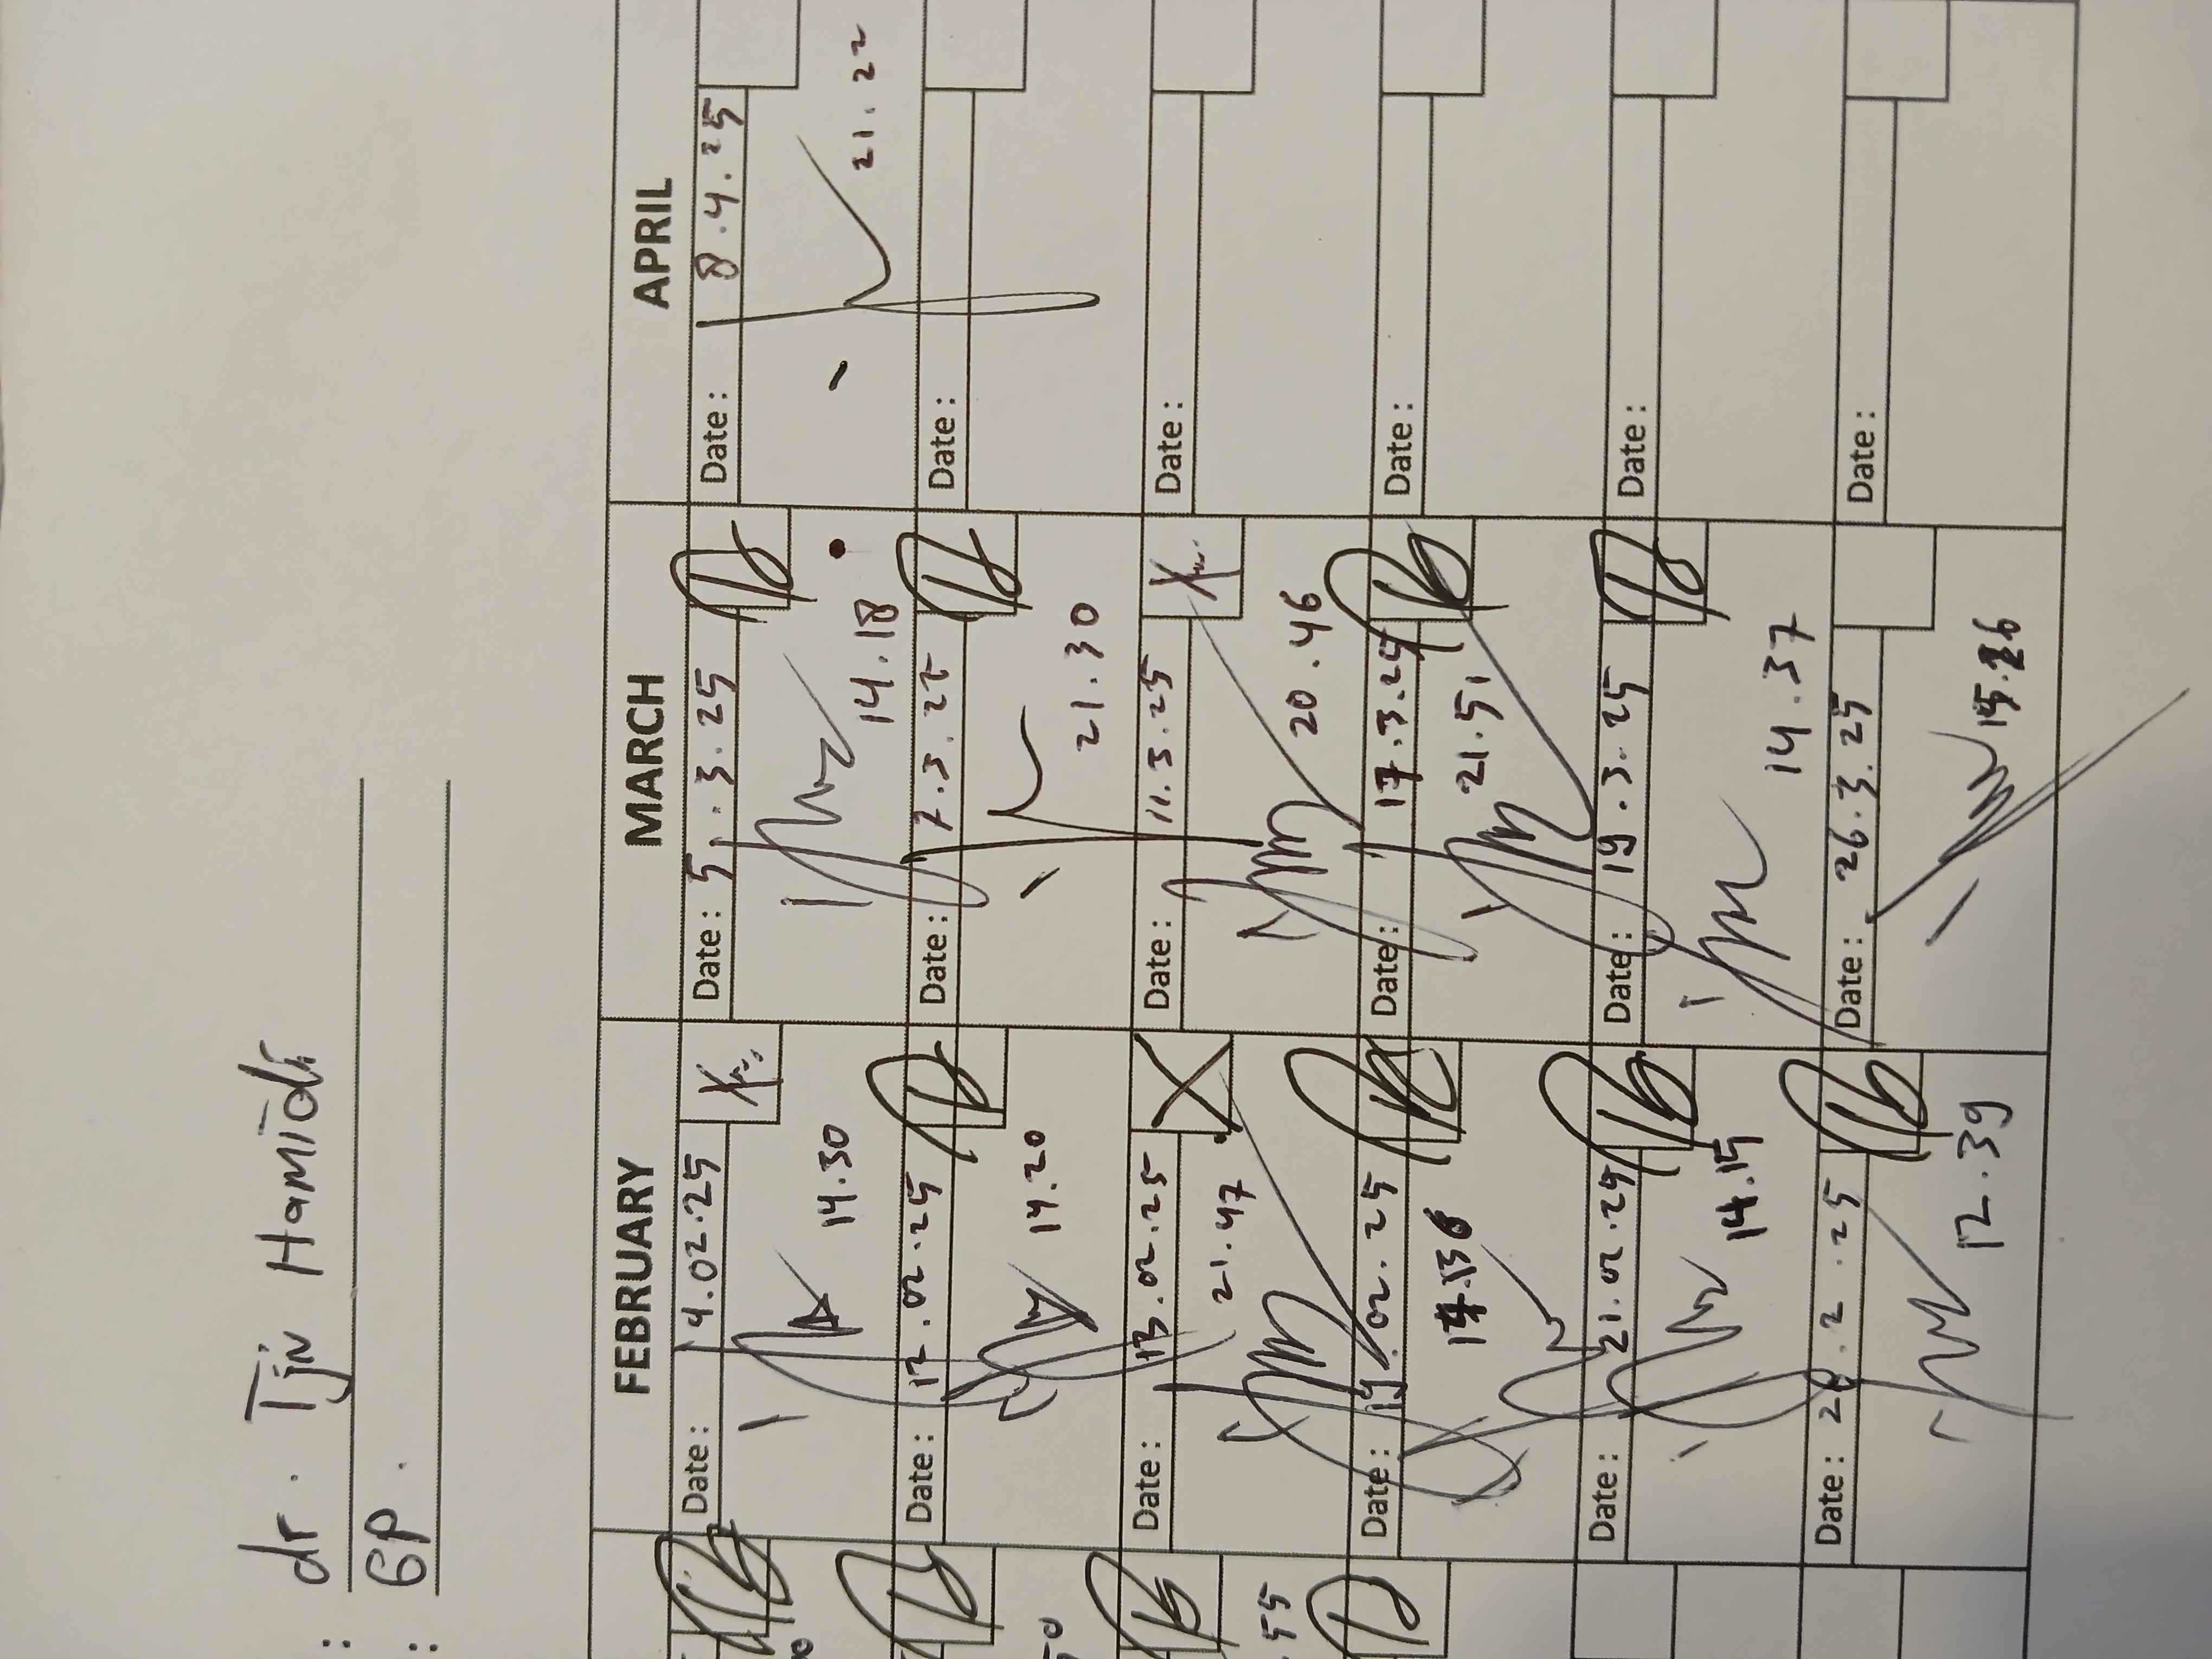 : dr. Tjin Hamidi
: GP.
FEBRUARY
MARCH
APRIL
Date: 4.02.25
14.30
Date: 5.3.25
14.18
Date: 8.4.25
21.22
Date: 12.02.25
14.20
Date: 7.3.25
21.30
Date:
Date: 13.02.25
21.47
Date: 11.3.25
20.46
Date:
55
Date: 19.02.25
Date: 17.3.25
21.51
Date:
Date: 21.02.25
14.15
Date: 19.3.25
14.37
Date:
Date: 28.2.25
12.39
Date: 26.3.25
Date: